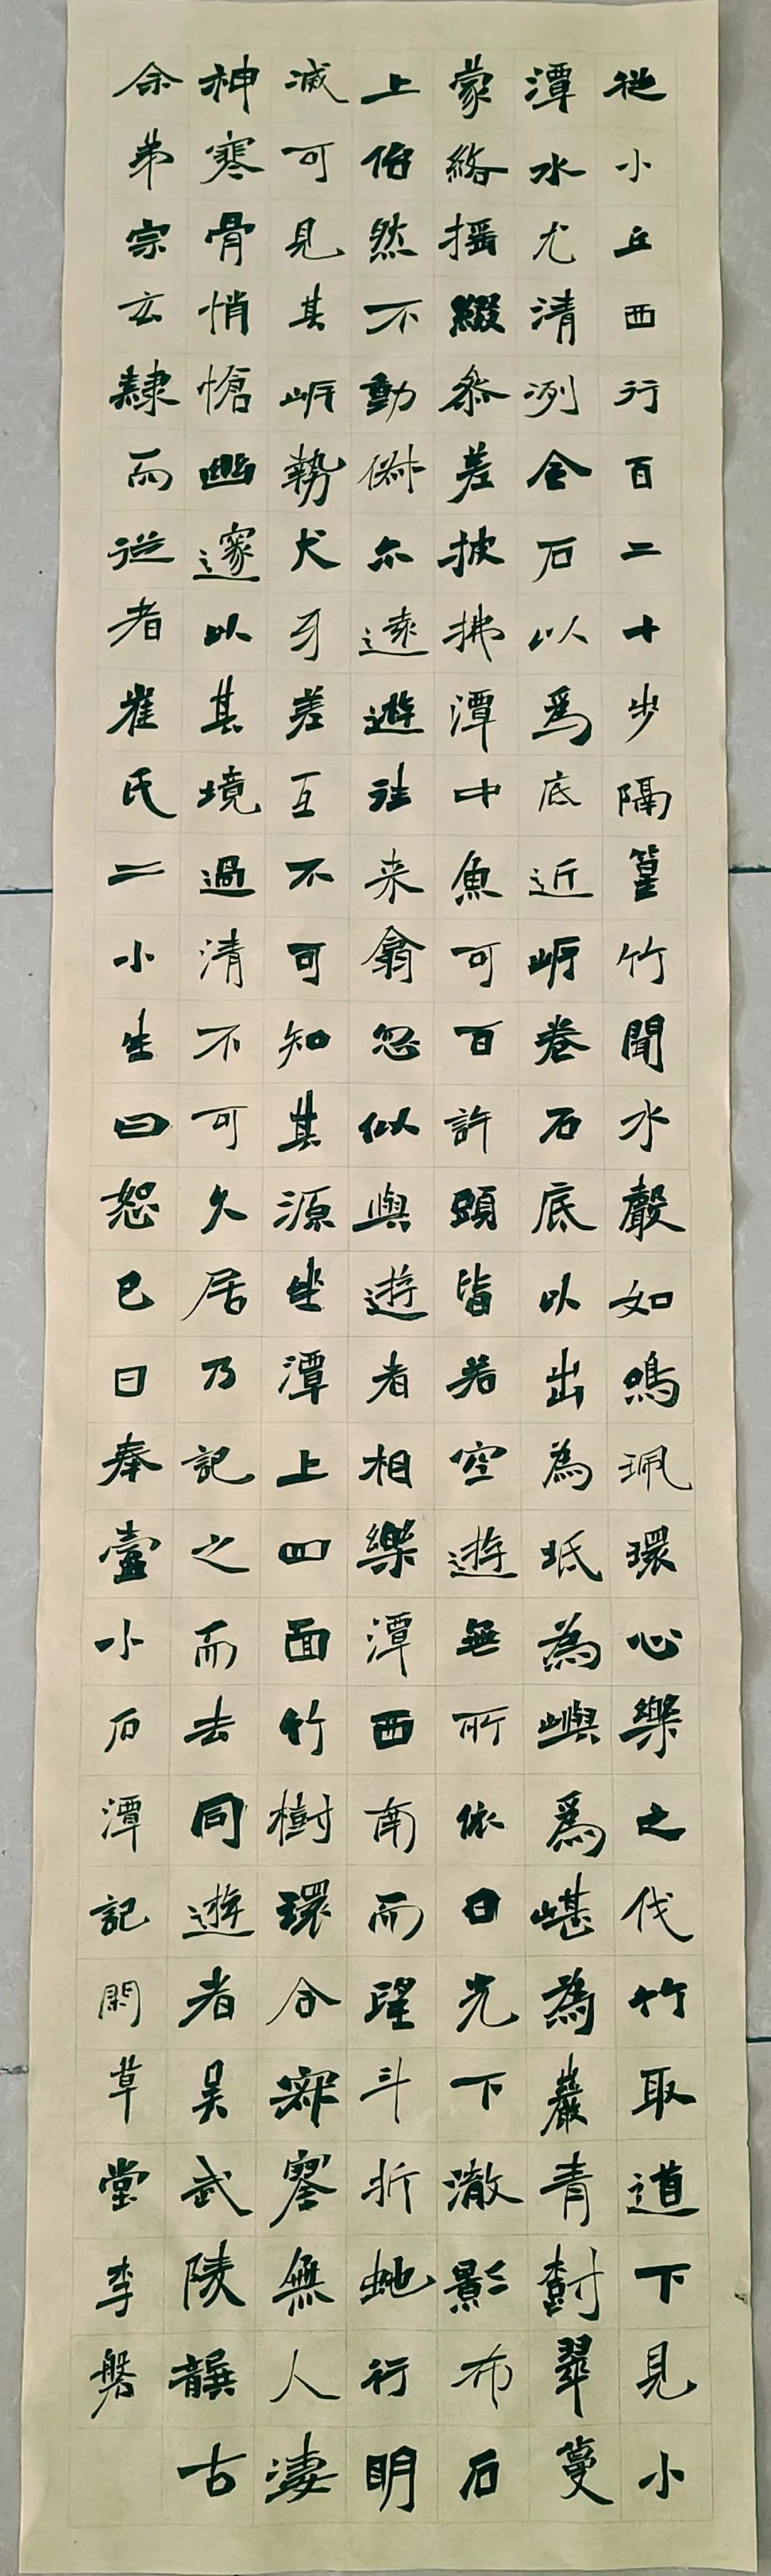 從小丘西行百二十步隔篁竹聞水聲如鳴珮環心樂之伐竹取道下見小
潭水尤清冽全石以為底近岍卷石底以出為坻為嶼為嵁為巖青樹翠蔓
蒙絡摇綴參差披拂潭中魚可百許頭皆若空遊無所依日光下澈影布石
上佁然不動俶尓遠遊往来翕忽似與遊者相樂潭西南而望斗折蛇行明
滅可見其岍勢犬牙差互不可知其源坐潭上四面竹樹環合寂寥無人淒
神寒骨悄愴幽邃以其境過清不可久居乃記之而去同遊者吳武陵龔古
余弟宗玄隸而從者崔氏二小生曰恕己曰奉壹小石潭記閑草堂李磐